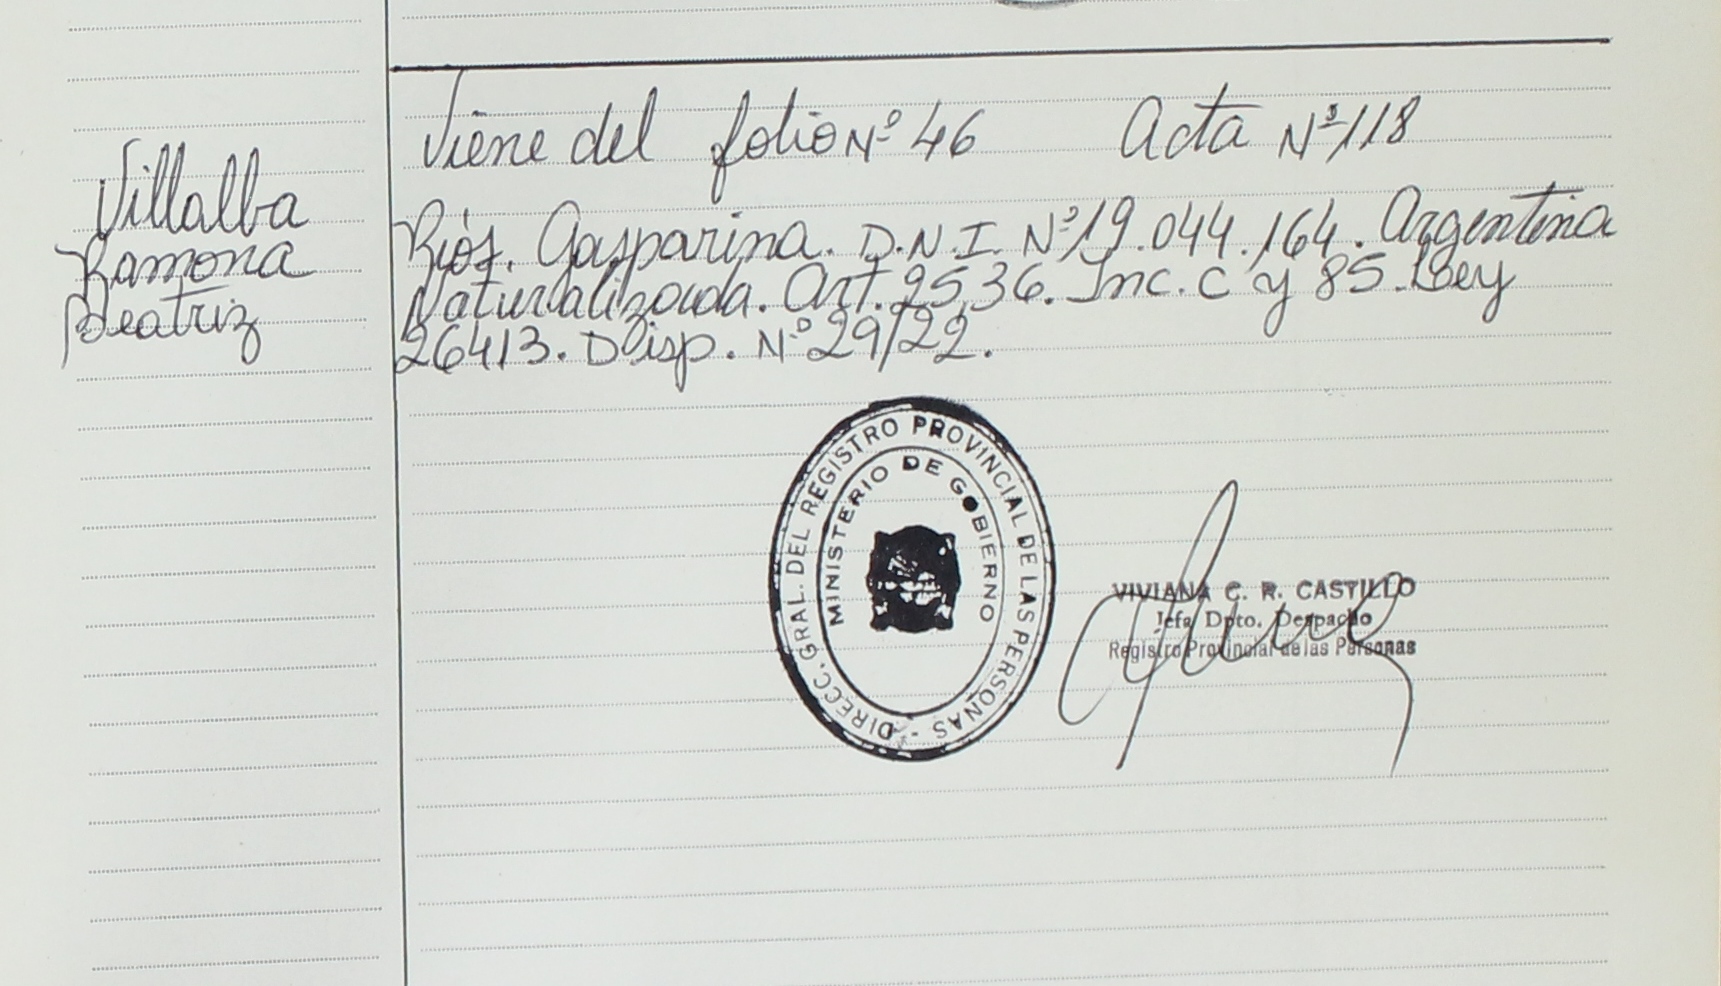 Viene del folio Nº 46 Acta Nº 118
Villalba
Ramona
Beatriz
Ríos. Gasparina. D.N.I. Nº 19.044.164. Argentina
Naturalizada. Art. 25,36. Inc. C y 85. Ley
26413. Disp. Nº 29/22.
DIRECC. GRAL. DEL REGISTRO PROVINCIAL DE LAS PERSONAS -
MINISTERIO DE GOBIERNO
VIVIANA C. R. CASTILLO
Jefa Dpto. Despacho
Registro Provincial de las Personas